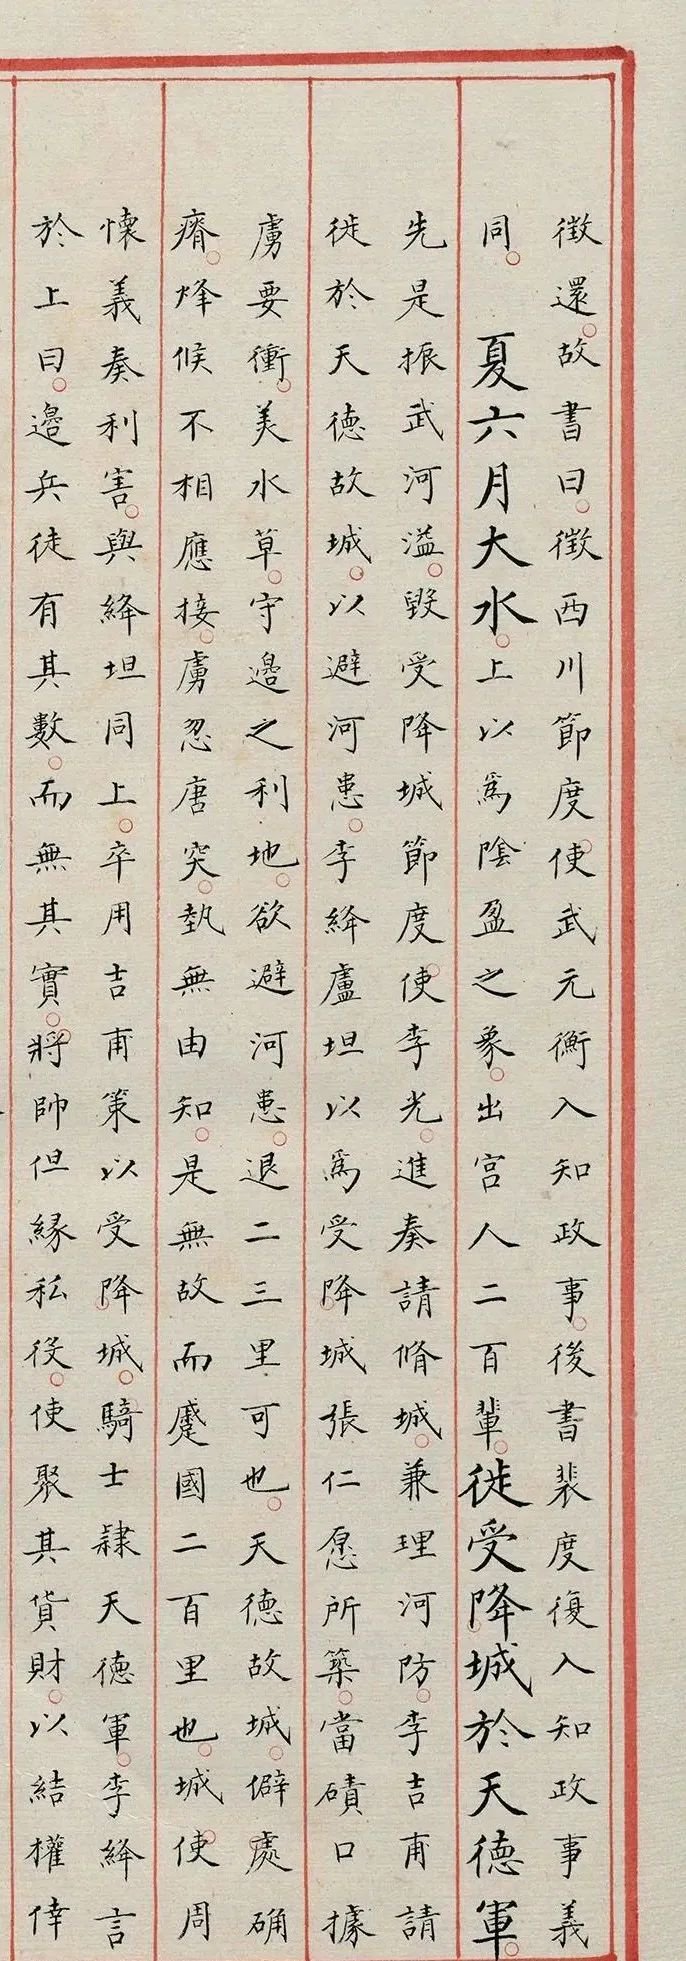 徵還故書曰徵西川節度使武元衡入知政事後書裴度復入知政事義
同 夏六月大水上以爲陰盈之象出宮人二百輩徙受降城於天德軍
先是振武河溢毀受降城節度使李光進奏請脩城兼理河防李吉甫請
徙於天德故城以避河患李絳盧坦以爲受降城張仁愿所築當磧口據
虜要衝美水草守邊之利地欲避河患退二三里可也天德故城僻處确
瘠烽候不相應接虜忽唐突埶無由知是無故而蹙國二百里也城使周
懷義奏利害與絳坦同上卒用吉甫策以受降城騎士隸天德軍李絳言
於上曰邊兵徒有其數而無其實將帥但緣私役使聚其貨財以結權倖